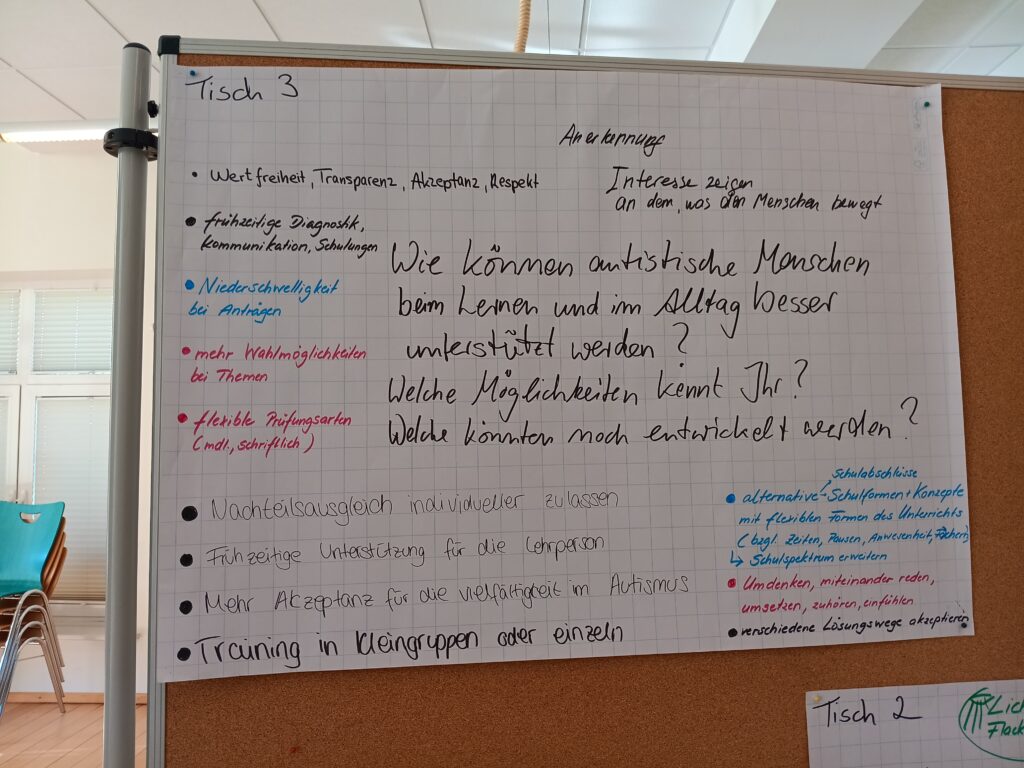 Tisch 3
Anerkennung
• Wertfreiheit, Transparenz, Akzeptanz, Respekt
Interesse zeigen
an dem, was den Menschen bewegt
• frühzeitige Diagnostik,
Kommunikation, Schulungen
• Niederschwelligkeit
bei Anträgen
• mehr Wahlmöglichkeiten
bei Themen
• flexible Prüfungsarten
(mdl., schriftlich)
Wie können autistische Menschen
beim Lernen und im Alltag besser
unterstützt werden?
Welche Möglichkeiten kennt Ihr?
Welche könnten noch entwickelt werden?
• Nachteilsausgleich individueller zulassen
• Frühzeitige Unterstützung für die Lehrperson
• Mehr Akzeptanz für die vielfältigkeit im Autismus
• Training in Kleingruppen oder einzeln
Schulabschlüsse
• alternative Schulformen + Konzepte
mit flexiblen Formen des Unterrichts
(bzgl. Zeiten, Pausen, Anwesenheit, Fächern)
↳ Schulspektrum erweitern
• Umdenken, miteinander reden,
umsetzen, zuhören, einfühlen
• verschiedene Lösungswege akzeptieren
Tisch 2